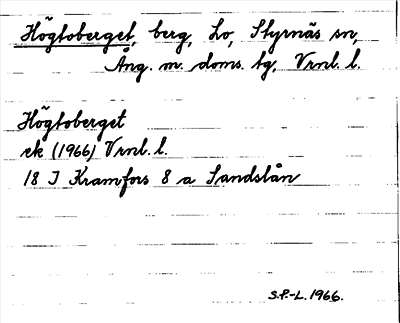 Högtoberget, berg, Lo, Styrnäs sn,
Ång. m. doms. tg, Vrnl. l.
Högtoberget
ek (1966) Vrnl. l.
18 J Kramfors 8 a Sandslån
S.P.-L. 1966.